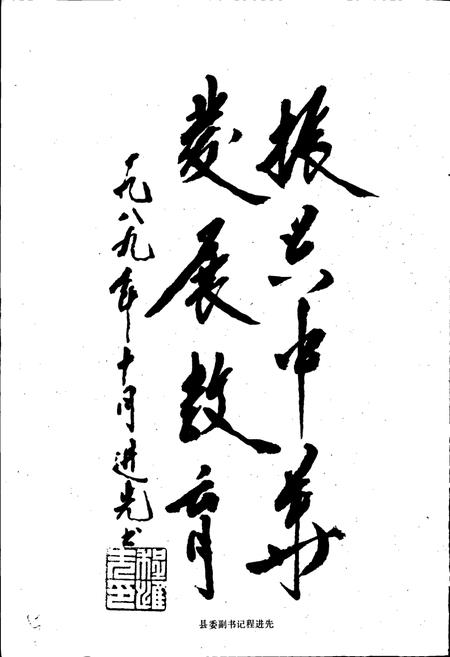 振兴中华
发展教育
一九八九年十月 进先书
程进先印
县委副书记程进先